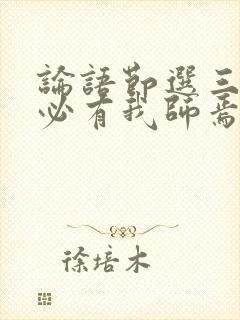 論語節選三
必有我師焉
徐培木